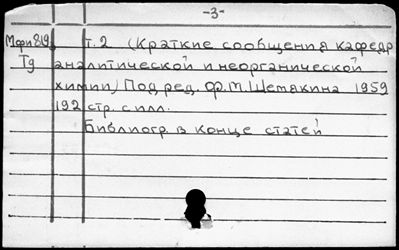 -3-
Мфи819. т. 2 (Краткие сообщения кафедр
Тд аналитической и неорганической
химии) Под ред. Ф.М. Шемякина 1959
192 стр. с илл.
Библиогр. в конце статей